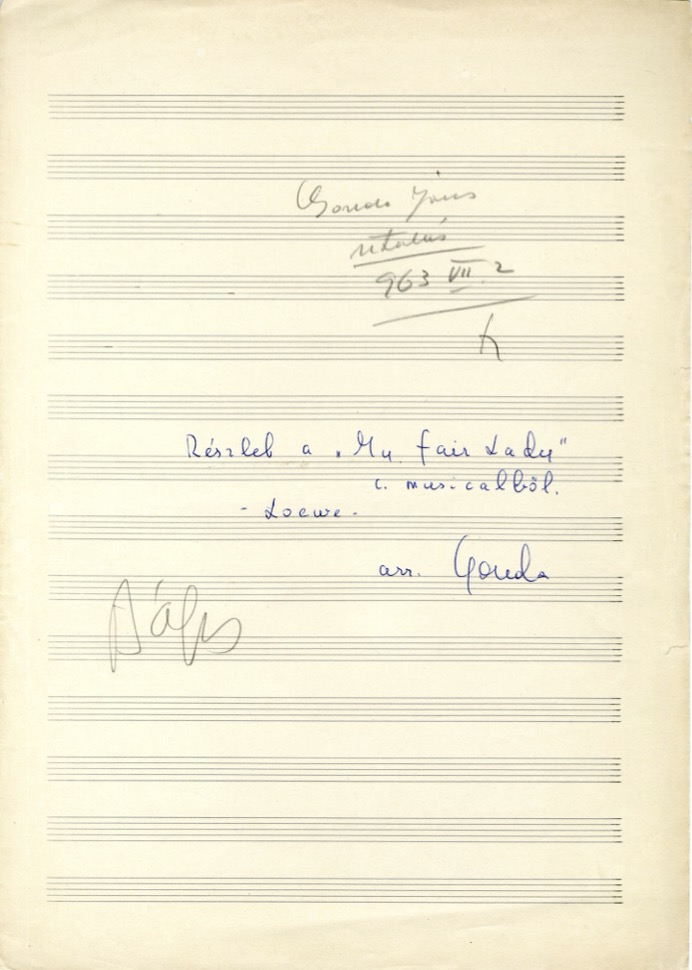 Gonda János
utalás
963 VII. 2
Részlet a „My fair Lady"
c. musicalból.
- Loewe -
arr. Gonda